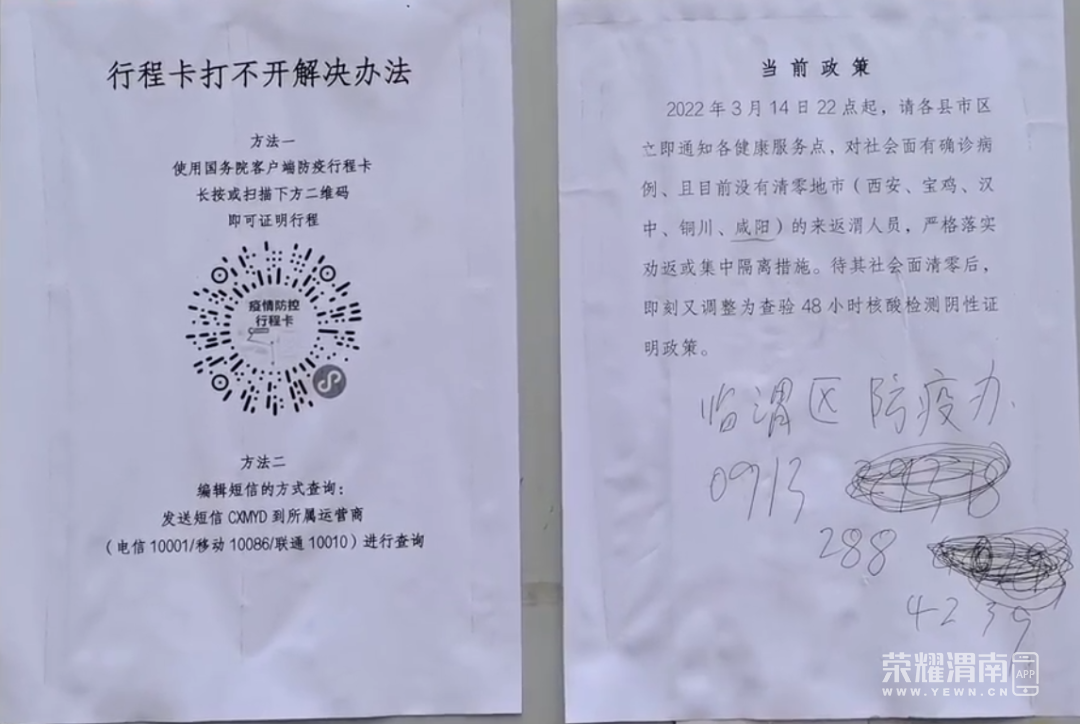 行程卡打不开解决办法
方法一
使用国务院客户端防疫行程卡
长按或扫描下方二维码
即可证明行程
疫情防控
行程卡
方法二
编辑短信的方式查询：
发送短信 CXMYD 到所属运营商
（电信 10001/移动 10086/联通 10010）进行查询
当前政策
2022 年 3 月 14 日 22 点起，请各县市区
立即通知各健康服务点，对社会面有确诊病
例、且目前没有清零地市（西安、宝鸡、汉
中、铜川、咸阳）的来返渭人员，严格落实
劝返或集中隔离措施。待其社会面清零后，
即刻又调整为查验 48 小时核酸检测阴性证
明政策。
临渭区防疫办
0913
288
4239
荣耀渭南 APP
WWW.YEWN.CN